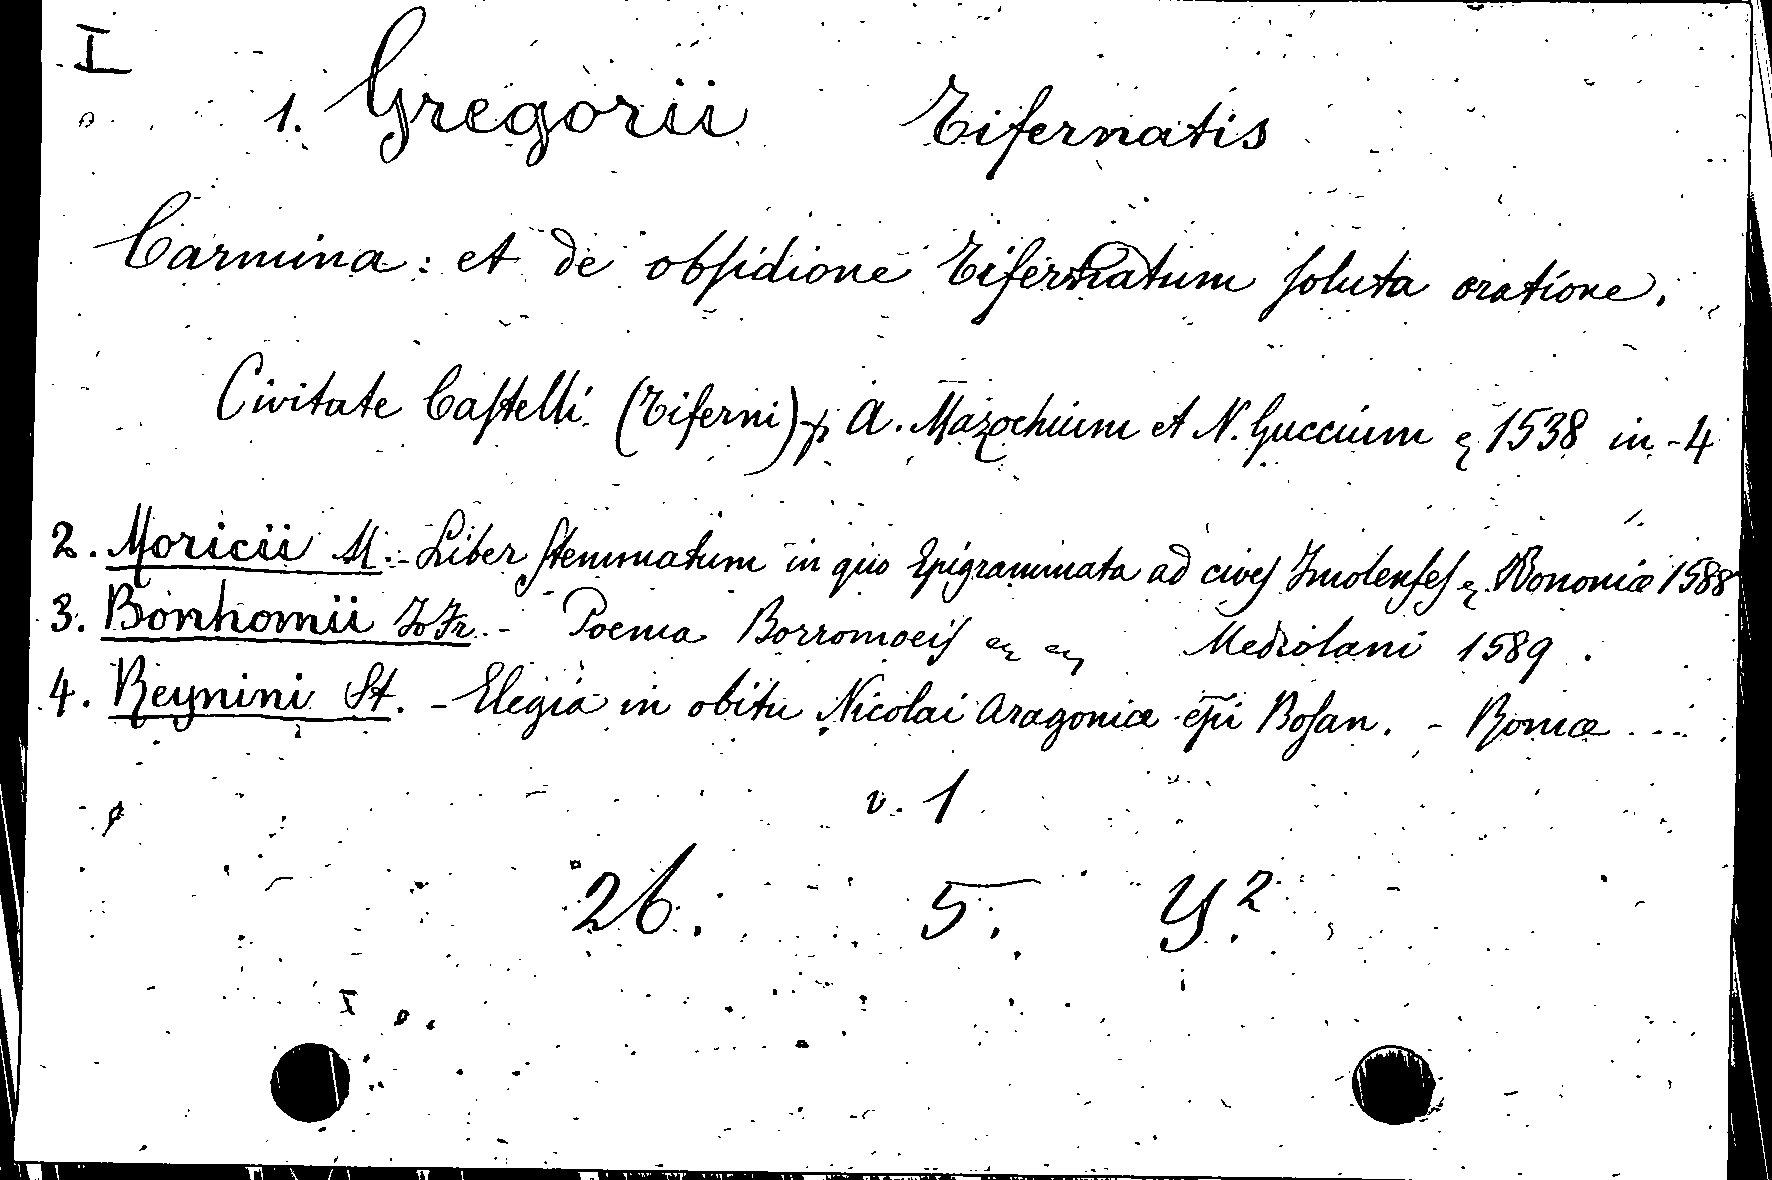 I
1. Gregorii Tifernatis
Carmina: et de obſidione Tifernatum ſoluta oratione.
Civitate Caſtelli. (Tiferni) p. A. Mazochium et N. Guccium 1538 in-4
2. Moricii M. - Liber ſtemmatum in quo Epigrammata ad cives Imolenſes Bononiæ 1588
3. Bonhomii Jo Fr. - Poema Borromoeis Mediolani 1589.
4. Reynini St. - Elegia in obitu Nicolai Aragoniæ epi Boſan. - Romæ ...
v. 1
26. 5. Y.²